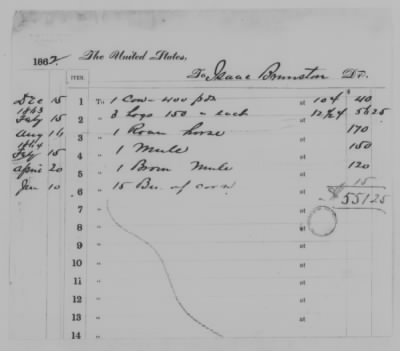 1862. The United States,
To Isaac Brunston Dr.
ITEM.
Dec 15 1 To 1 Cow - 400 pds at 10¢ 40
1863
Feby 15 2 " 3 hogs 150 " each at 12½¢ 56 25
Aug 16 3 " 1 Roan horse at 170
1864
Feby 15 4 " 1 Mule at 150
April 20 5 " 1 Brown Mule at 120
Jan 10 6 " 15 Bu. of corn at 15
7 " at 551 25
8 " at
9 " at
10 " at
11 " at
12 " at
13 " at
14 " at